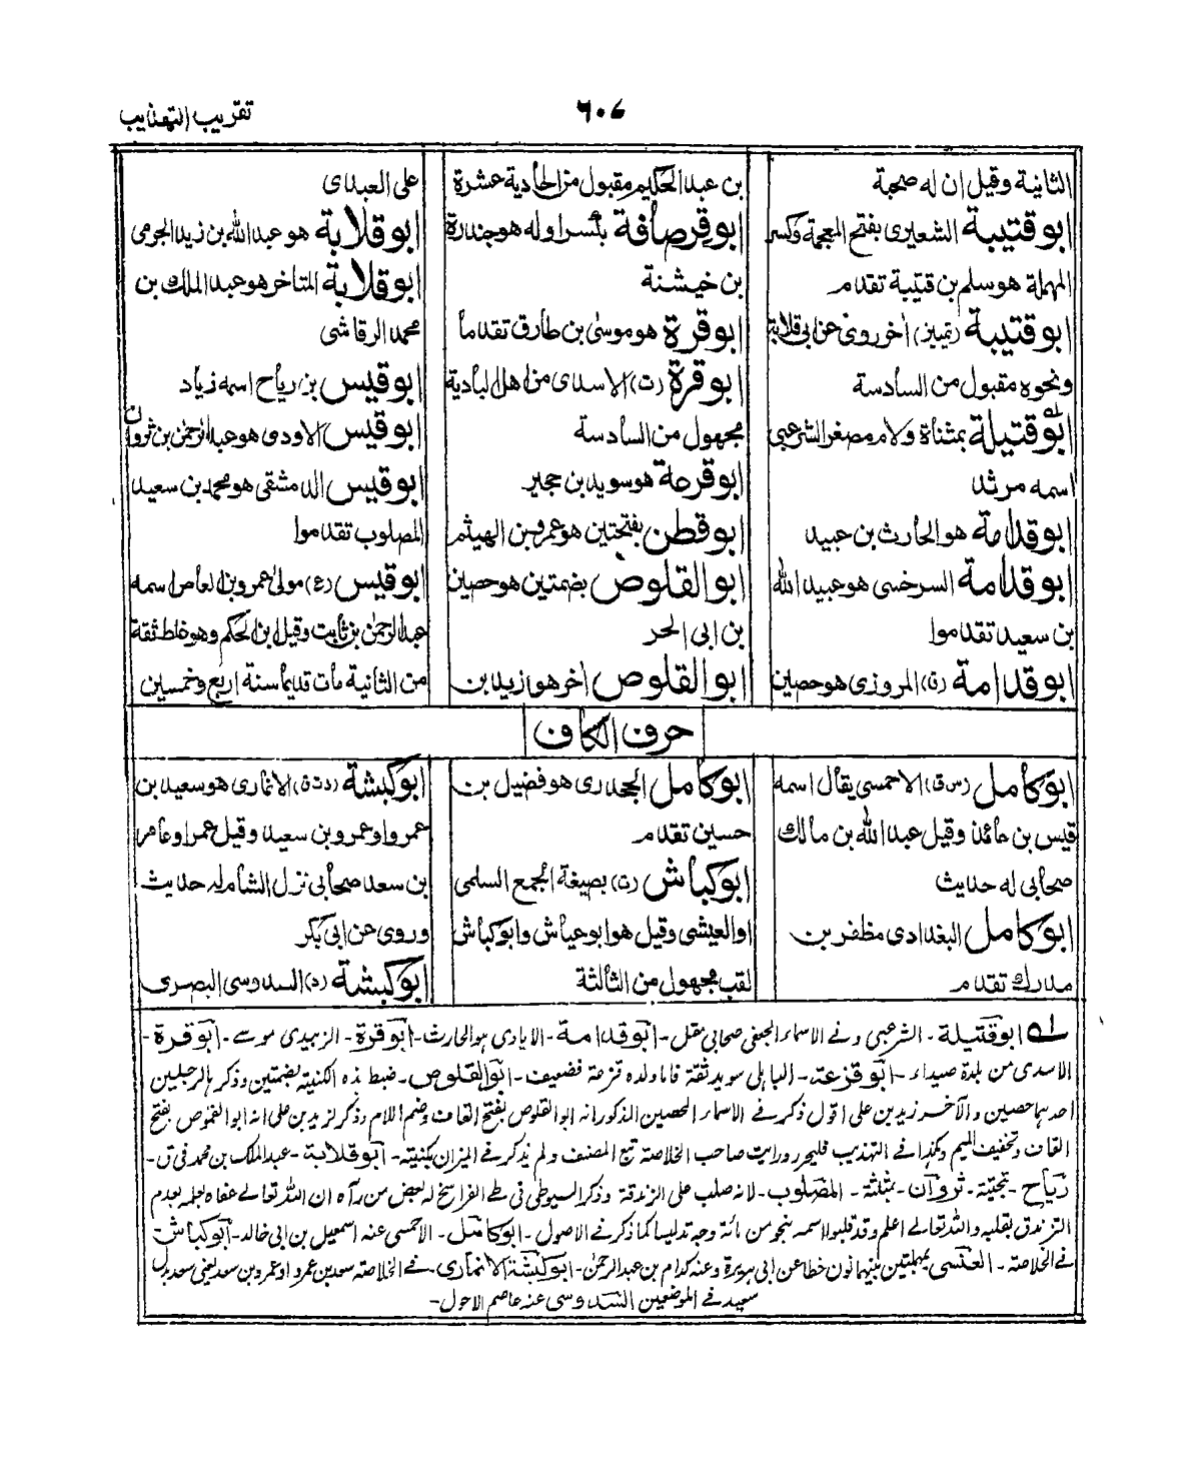 تقريب التهذيب
٦٠٧
الثانية وقيل ان له صحبة
ابو قتيبة الشعيرى بفتح المعجمة وكسر
المهملة هو سلم بن قتيبة تقدم
ابو قتيبة (تمييز) اخر روى عن ابى قلابة
ونحوه مقبول من السادسة
ابو قتيلة بمثناة ولام مصغر الشرعبى
اسمه مرثد
ابو قدامة هو الحارث بن عبيد
ابو قدامة السرخسى هو عبيد الله
بن سعيد تقدموا
ابو قدامة (ق) المروزى هو حصين
بن عبد الحكيم مقبول من الحادية عشرة
ابو قرصافة بكسر اوله هو جندرة
بن خيشنة
ابو قرة هو موسى بن طارق تقدما
ابو قرة (ت) الاسدى من اهل البادية
مجهول من السادسة
ابو قزعة هو سويد بن حجير
ابو قطن بفتحتين هو عمرو بن الهيثم
ابو القلوص بضمتين هو حصين
بن ابى الحر
ابو القلوص اخر هو ازيد بن
على العبدى
ابو قلابة هو عبد الله بن زيد الجرمى
ابو قلابة المتاخر هو عبد الملك بن
محمد الرقاشى
ابو قيس بن رياح اسمه زياد
ابو قيس الاودى هو عبد الرحمن بن ثروان
ابو قيس الدمشقى هو محمد بن سعيد
المصلوب تقدموا
ابو قيس (ع) مولى عمرو بن العاص اسمه
عبد الرحمن بن ثابت وقيل ابن الحكم وهو غلط ثقة
من الثانية مات قديما سنة اربع وخمسين
حرف الكاف
ابو كامل (س ق) الاحمسى يقال اسمه
قيس بن عائذ وقيل عبد الله بن مالك
صحابى له حديث
ابو كامل البغدادى مظفر بن
مدرك تقدم
ابو كامل الجحدرى هو فضيل بن
حسين تقدم
ابو كباش (ت) بصيغة الجمع السلمى
او العيشى وقيل هو ابو عياش وابو كباش
لقب مجهول من الثالثة
ابو كبشة (د ت ق) الانمارى هو سعيد بن
عمرو او عمرو بن سعيد وقيل عمر او عامر
بن سعد صحابى نزل الشام له حديث
وروى عن ابى بكر
ابو كبشة (د) السدوسى البصرى
له ابو قتيلة - الشرعبى وفے الاسماء الجعفى صحابى مقل - ابو قدامة - الايادى ہو الحارث - ابو قرة - الزبيدى موسے - ابو قرة -
الاسدى من بلدة صيداء - ابو قزعة - الباہلى سويد ثقة فاما ولده قزعة فضعيف - ابو القلوص - ضبط ہذہ الكنية بضمتين وذكر بالرجلين
احدہما حصين والآخر زيد بن على اقول ذكر فے الاسماء الحصين المذكور انہ ابو القلوص بفتح القاف وضم اللام وذكر لزيد بن على انہ ابو القموص بفتح
القاف وتخفيف الميم وہكذا فے التہذيب فليحرر ورايت صاحب الخلاصة تبع المصنف ولم يذكر فے الميزان بكنيتہ - ابو قلابة - عبد الملك بن محمد فى ق -
رياح - بتحتية - ثروان - بمثلثة - المصلوب - لانہ صلب على الزندقة وذكر السيوطى فى طے الفراسخ لہ لبعض من رآہ ان اللہ تعالے عفاہ لعلمہ بعدم
التزندق بقلبہ واللہ تعالے اعلم وقد قلبوا اسمہ بنحو من مائة وجہ تدليسا كما ذكر فے الاصول - ابو كامل - الاحمسى عنہ اسمعيل بن ابى خالد - ابو كباش
فے الخلاصة - العنسى بمہملتين بينہما نون خطا عن ابى ہريرة وعنہ كدام بن عبد الرحمن - ابو كبشة الانمارى - فے الخلاصہ سعد بن عمرو او عمرو بن سعد يعنى سعد بدل
سعيد فے الموضعين السدوسى عنہ عاصم الاحول -